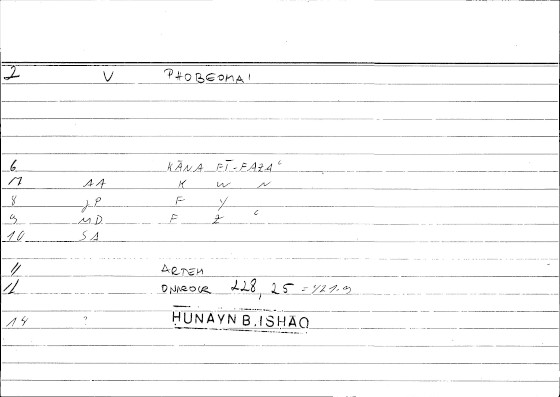 2 V PHOBEOMAI
6 KĀNA FĪ-FAZAʿ
7 AA K W N
8 JP F Y
9 MD F Z ʿ
10 SA
11 ARTEM
12 ONIROCR 228, 25 = 421.9
14 ? HUNAYN B. ISHAQ